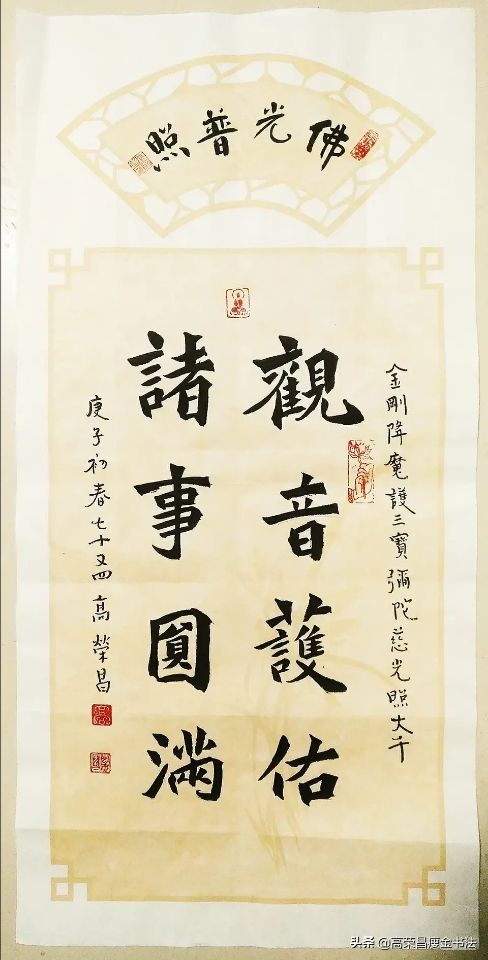 佛光普照
金剛降魔護三寶彌陀慈光照大千
觀音護佑
諸事圓滿
庚子初春七十又四高榮昌
头条 @高荣昌瘦金书法